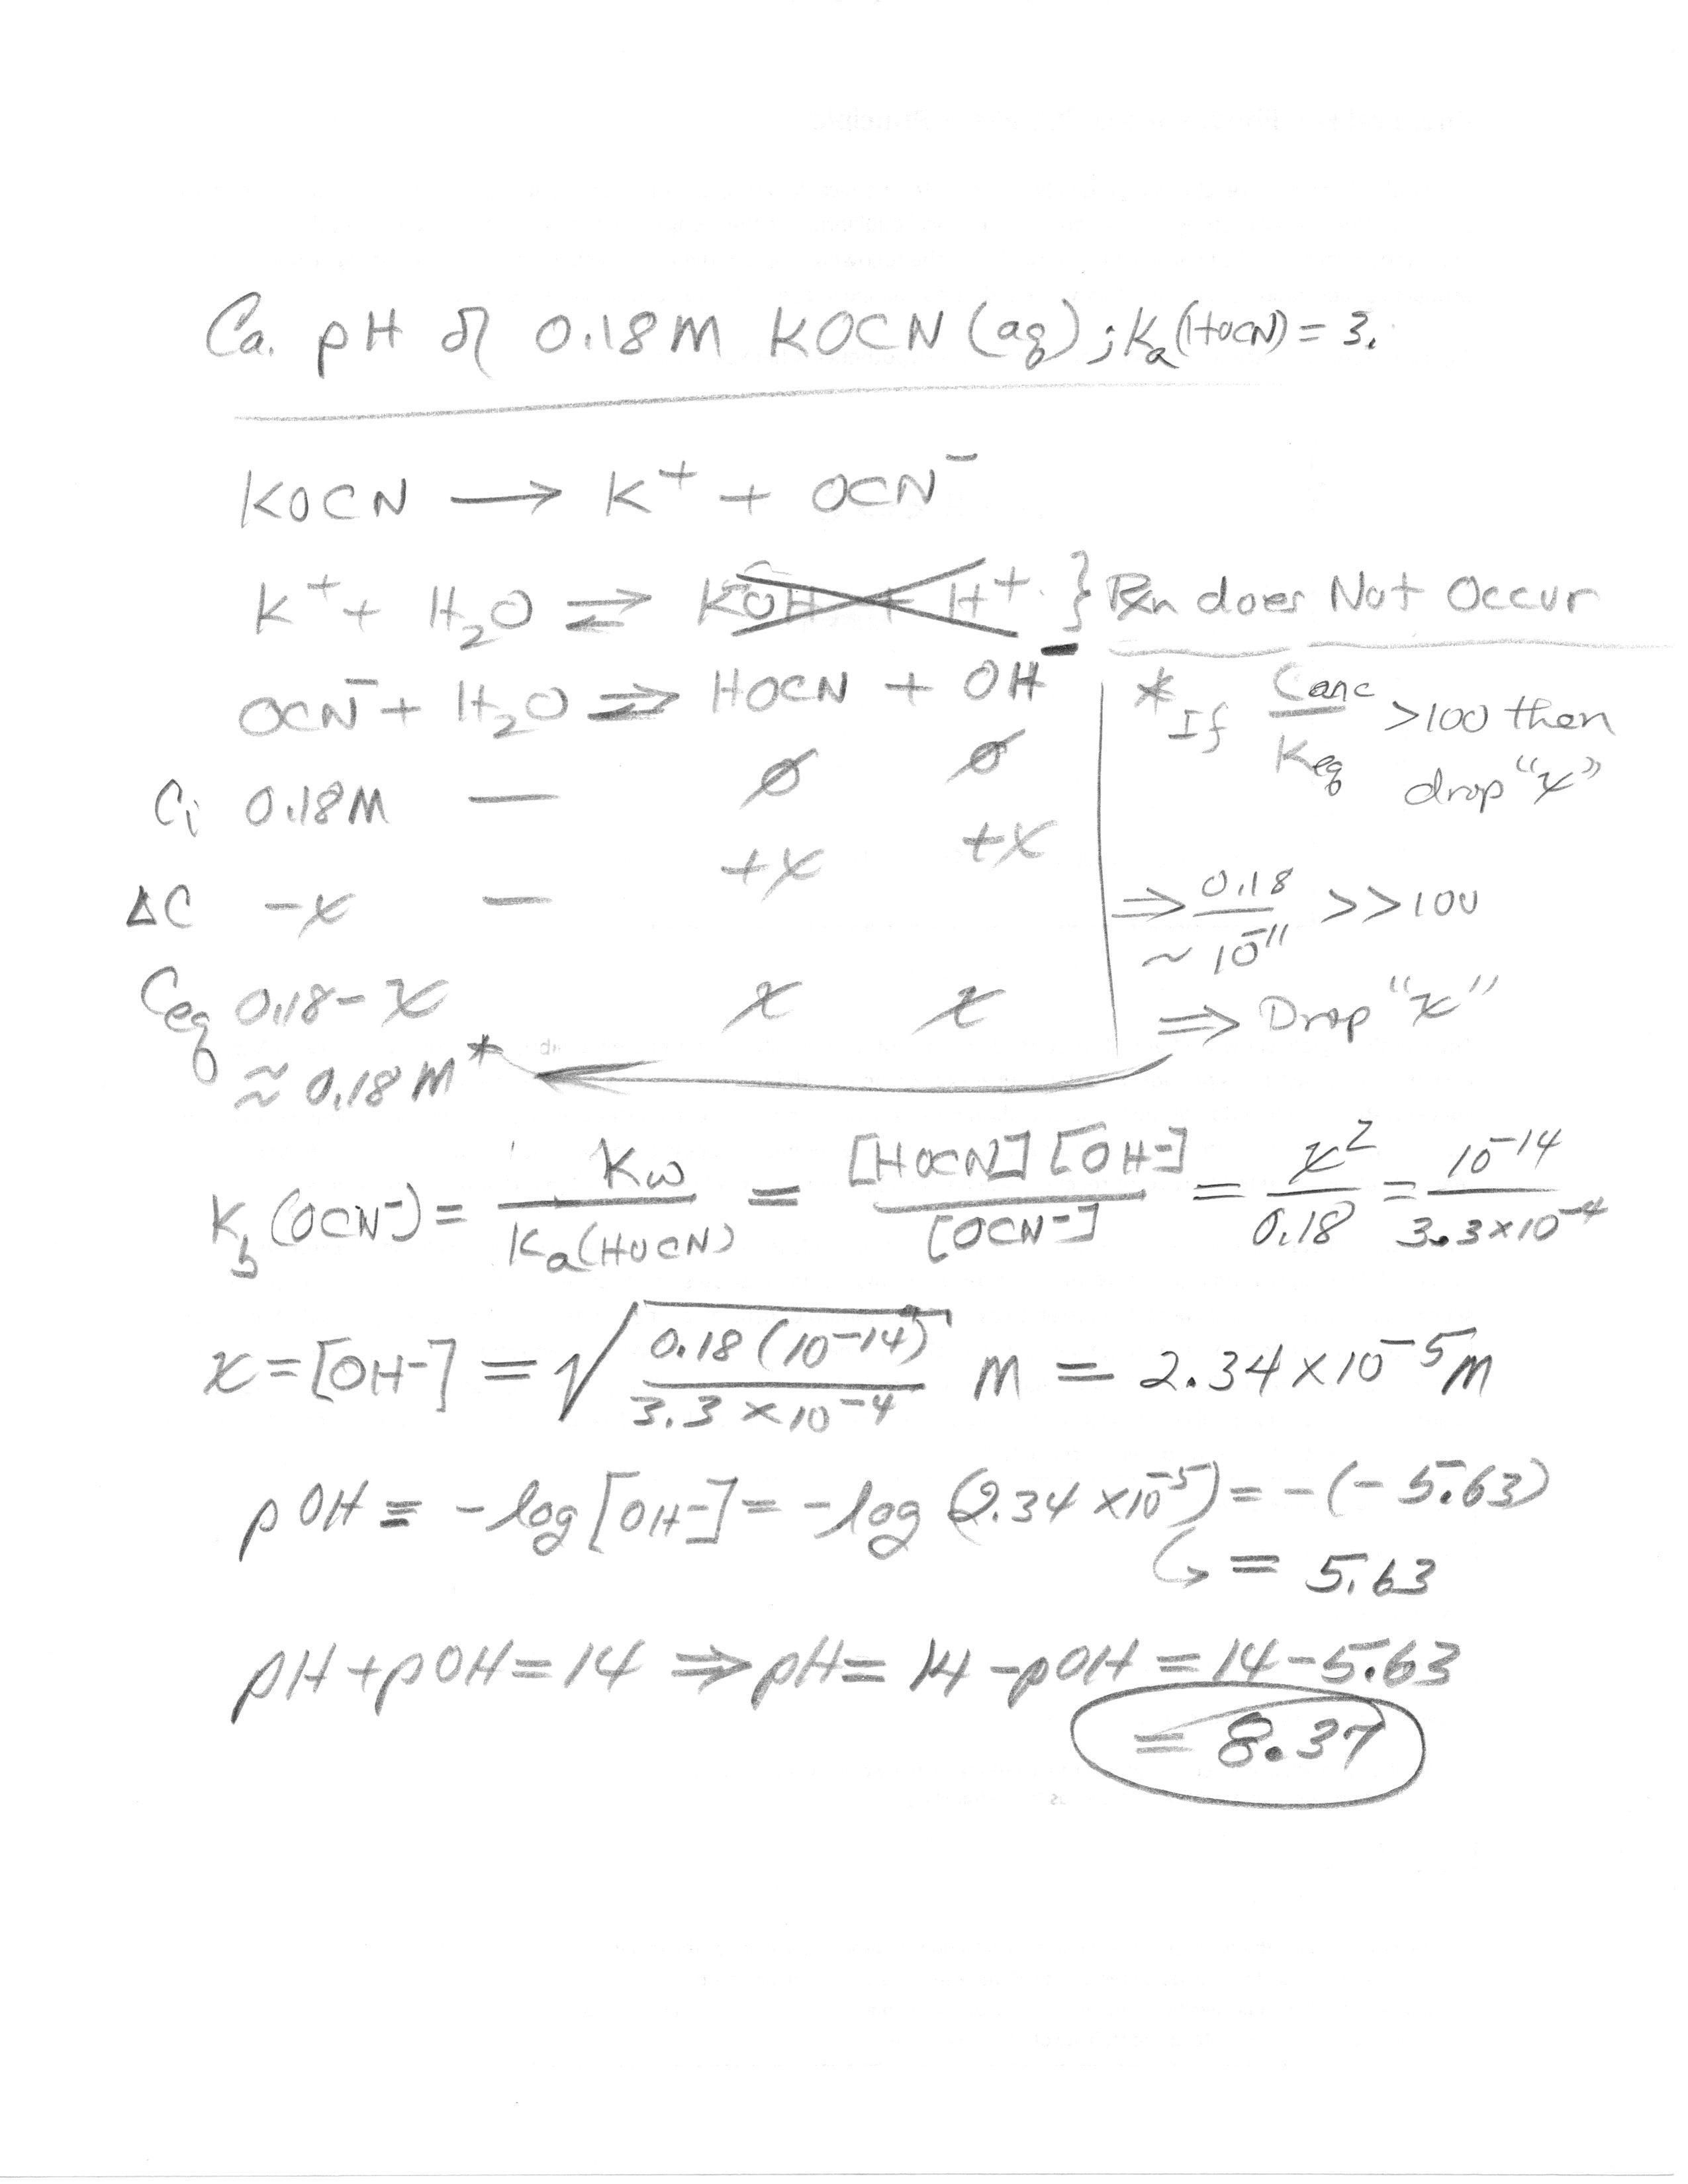 Ca. pH of 0.18M KOCN (aq) ; Ka(HOCN) = 3.
KOCN → K⁺ + OCN⁻
K⁺ + H₂O ⇌ KOH + H⁺ } Rxn does Not Occur
OCN⁻ + H₂O ⇌ HOCN + OH⁻
Ci 0.18M — ∅ ∅
ΔC -x — +x +x
Ceq 0.18-x x x
≈ 0.18M*
* If Conc / Keq >100 then
drop "x"
⇒ 0.18 / ~10⁻¹¹ >>100
⇒ Drop "x"
Kb (OCN⁻) = Kw / Ka(HOCN) = [HOCN][OH⁻] / [OCN⁻] = x² / 0.18 = 10⁻¹⁴ / 3.3×10⁻⁴
x = [OH⁻] = √(0.18(10⁻¹⁴) / 3.3×10⁻⁴) M = 2.34×10⁻⁵M
pOH = -log[OH⁻] = -log(2.34×10⁻⁵) = -(-5.63)
↳ = 5.63
pH + pOH = 14 ⇒ pH = 14 - pOH = 14 - 5.63
= 8.37